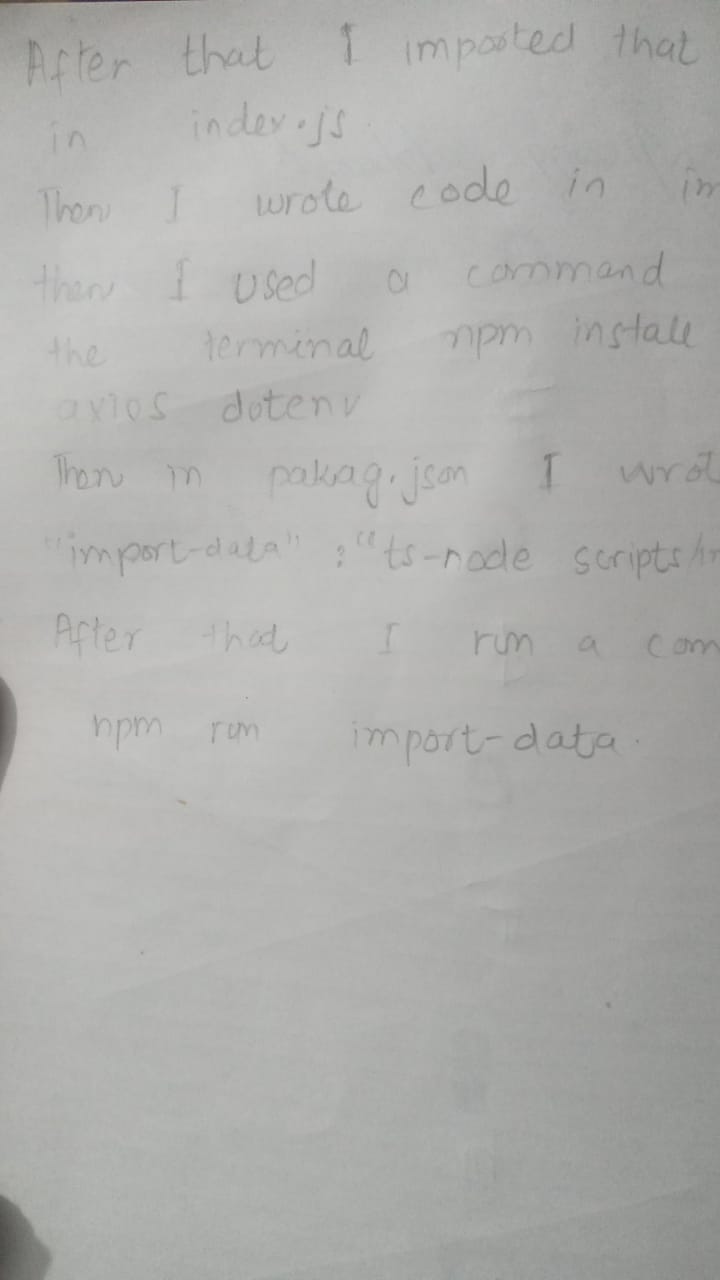 After that I imported that
in index.js
Then I wrote code in im
then I used a command
the terminal npm install
axios dotenv
Then in pakag.json I wrot
"import-data" : "ts-node scripts/im
After that I run a com
npm run import-data.